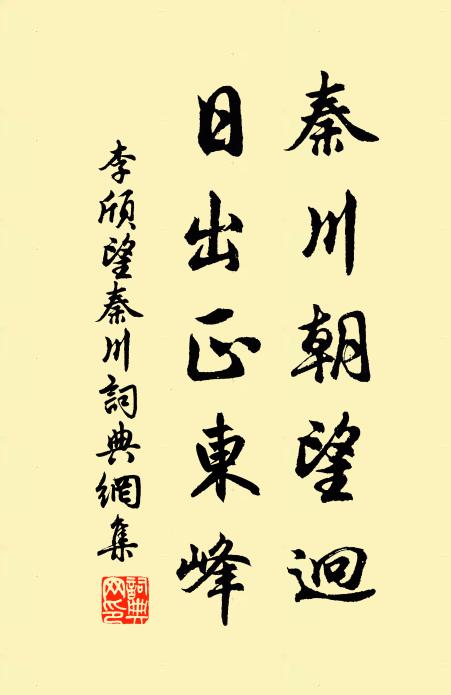 秦川朝望迥
日出正東峰
李頎望秦川詞典網集
詞典
网印